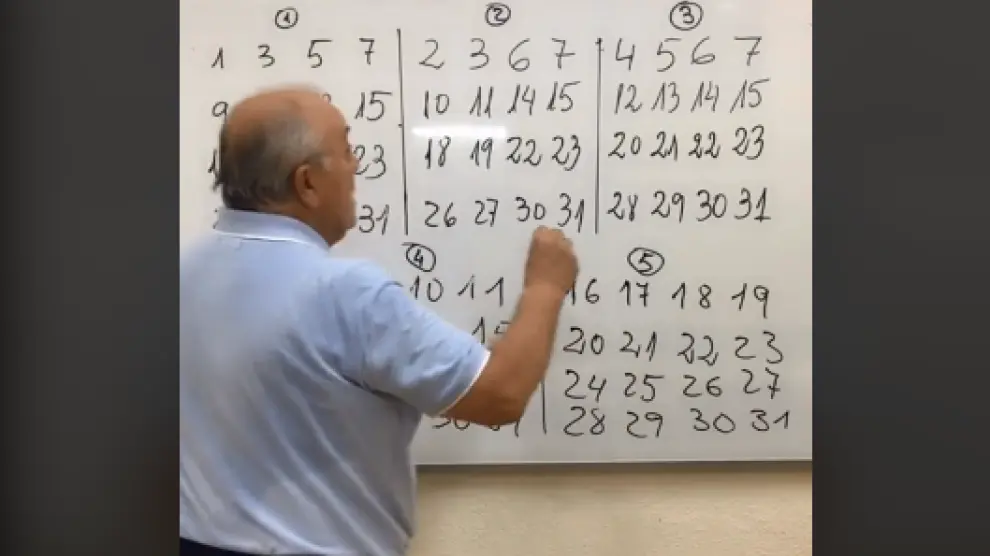 ① ② ③
1 3 5 7 2 3 6 7 4 5 6 7
9 15 10 11 14 15 12 13 14 15
23 18 19 22 23 20 21 22 23
31 26 27 30 31 28 29 30 31
④ ⑤
10 11 16 17 18 19
15 20 21 22 23
24 25 26 27
30 31 28 29 30 31